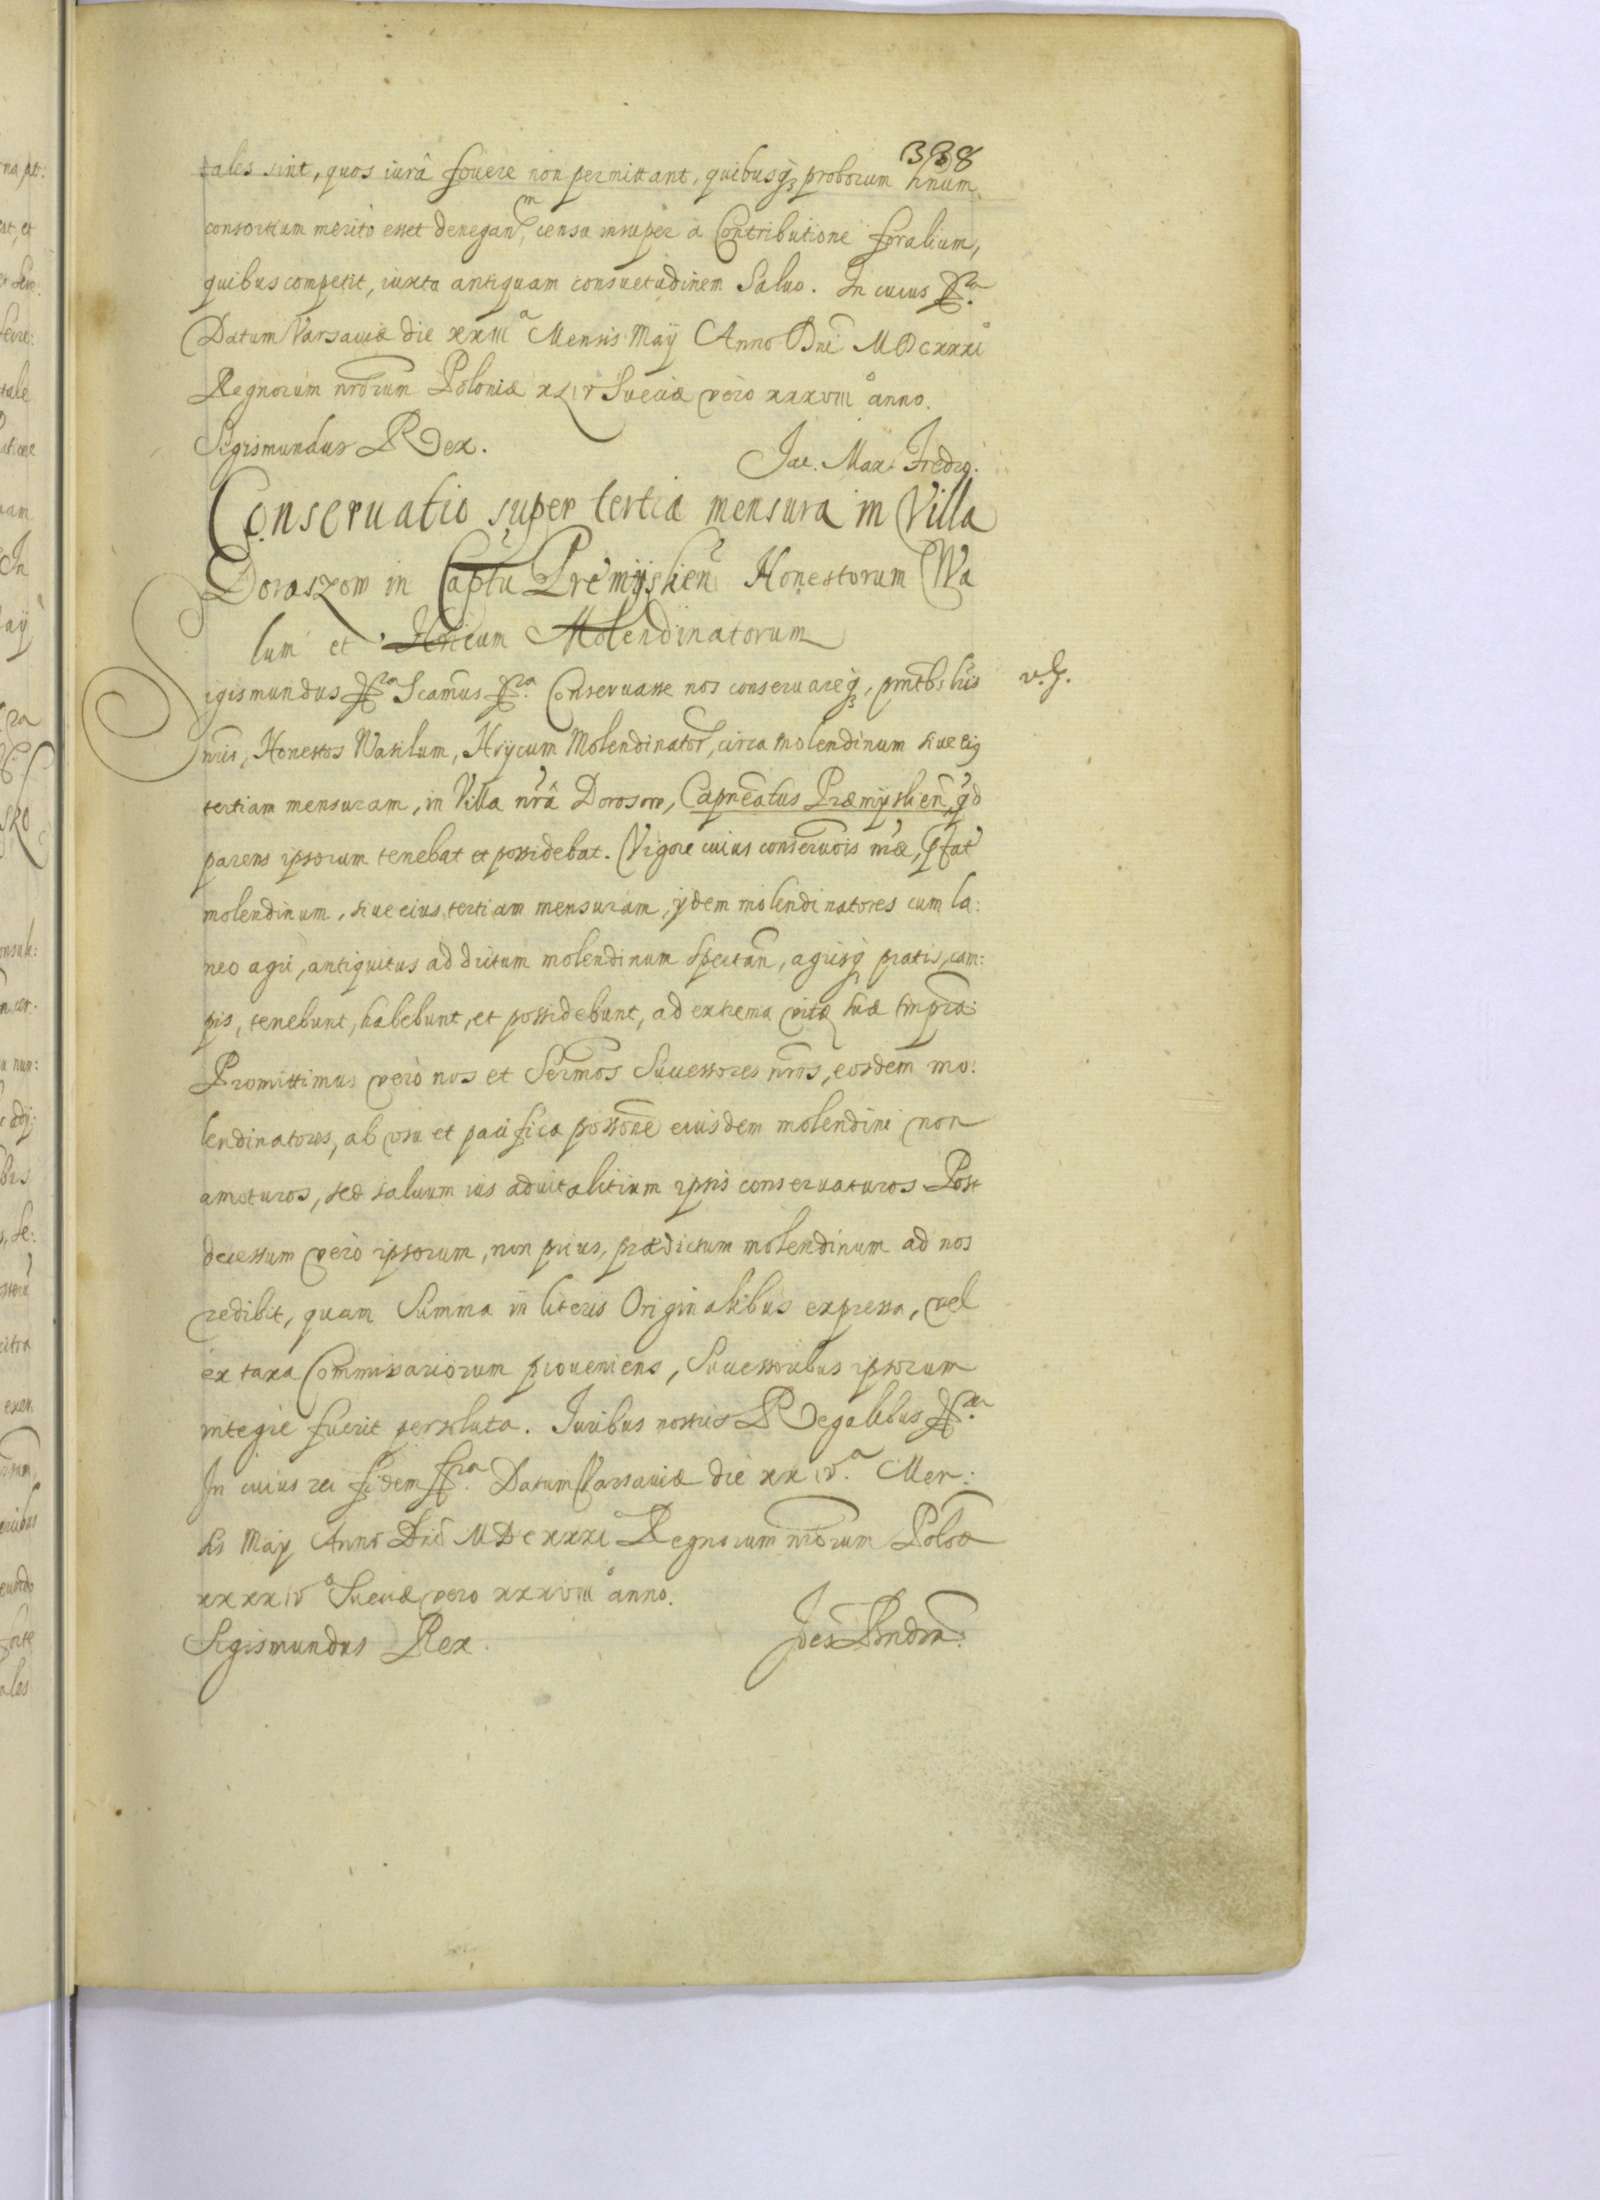 338
tales sint, quos iura fouere non permittant, quibusq3 proborum hnum
consortium merito esset denegan̄m, censu insuper a Contributione foralium,
quibus competit, iuxta antiquam consuetudinem Saluo. In cuius
Datum Varsauiæ die xxiii a Mensis Maÿ Anno Dni MDCxxxi
Regnorum nrorum Poloniæ xLiv Sueciæ vero xxxviii o anno.
Sigismundus Rex. Jac. Max. Fredro.
Conseruatio super tertia mensura in Villa
Doroszow in Captu Premÿslien Honestorum Wa
lum et Hricum Molendinatorum
igismundus Scamus Conseruasse nos conseruareq3, pntbs lris v.g.
nris, Honestos Wasilum, Hrÿcum Molendinator, circa molendinum siue eig
tertiam mensuram, in Villa nra Dorosow, Capneatus Præmÿslien, qd
parens ipsorum tenebat et possidebat. Vigore cuius conseruois nræ, pfat
molendinum, siue eius tertiam mensuram, ÿdem molendinatores cum la:
neo agri, antiquitus ad dictum molendinum spectan, agrisq pratis, cam:
pis, tenebunt, habebunt, et possidebunt, ad extrema vitæ suæ tmpra:
Promittimus vero nos et Sermos Successores nros, eosdem mo:
lendinatores, ab usu et pacifica possone eiusdem molendini non
amoturos, sed saluum ius aduitalitium ipsis conseruaturos Post
decessum vero ipsorum, non prius, prædictum molendinum ad nos
redibit, quam Summa in literis Originalibus expressa, vel
ex taxa Commissariorum proueniens, Successoribus ipsorum
integre fuerit persoluta. Iuribus nostris Regalibus
In cuius rei fidem Datum Varsauiæ die xxiv. a Men:
sis Maÿ Anno Dni MDCxxxi Regnorum nrorum Poloæ
xxxxiv o Sueciæ vero xxxviii o anno.
Sigismundus Rex.